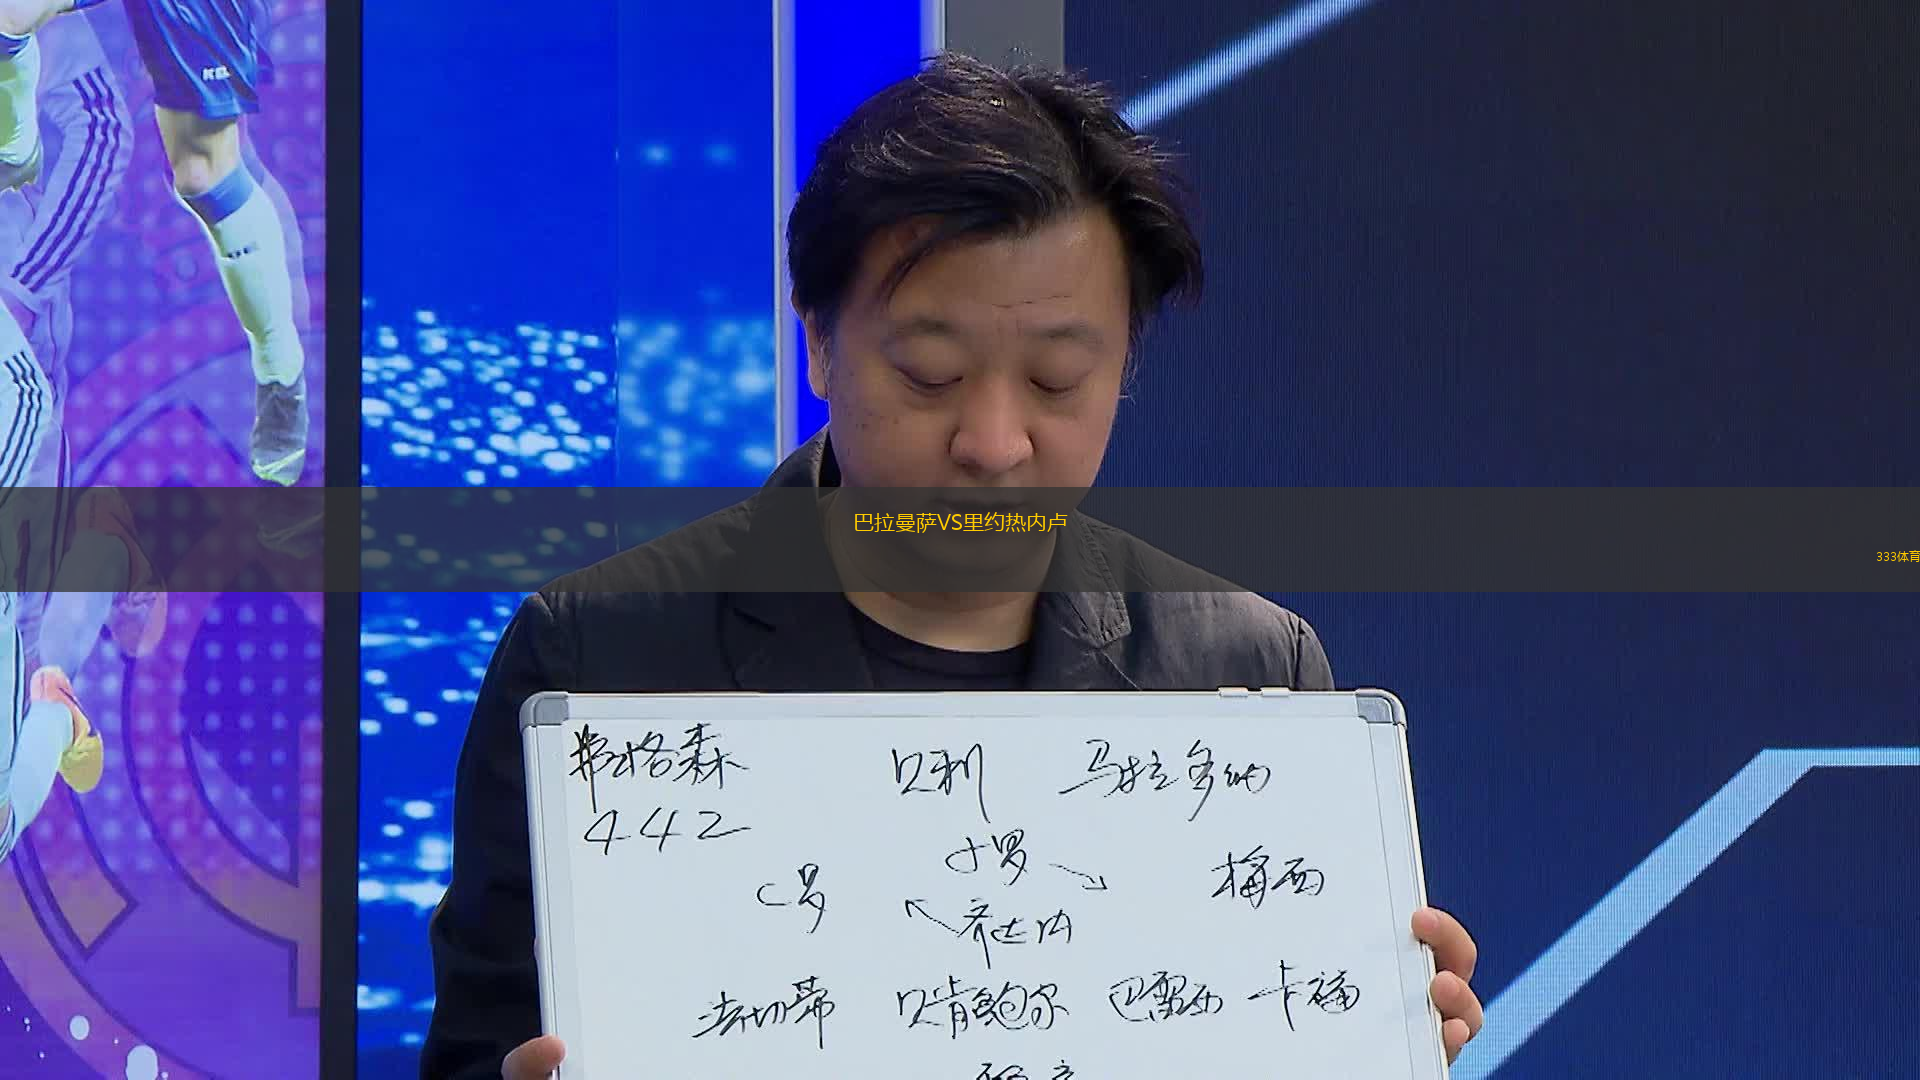 巴拉曼萨VS里约热内卢
333体育
弗格森 贝利 马拉多纳
442
小罗
C罗 梅西
齐达内
法切蒂 贝肯鲍尔 巴雷西 卡福